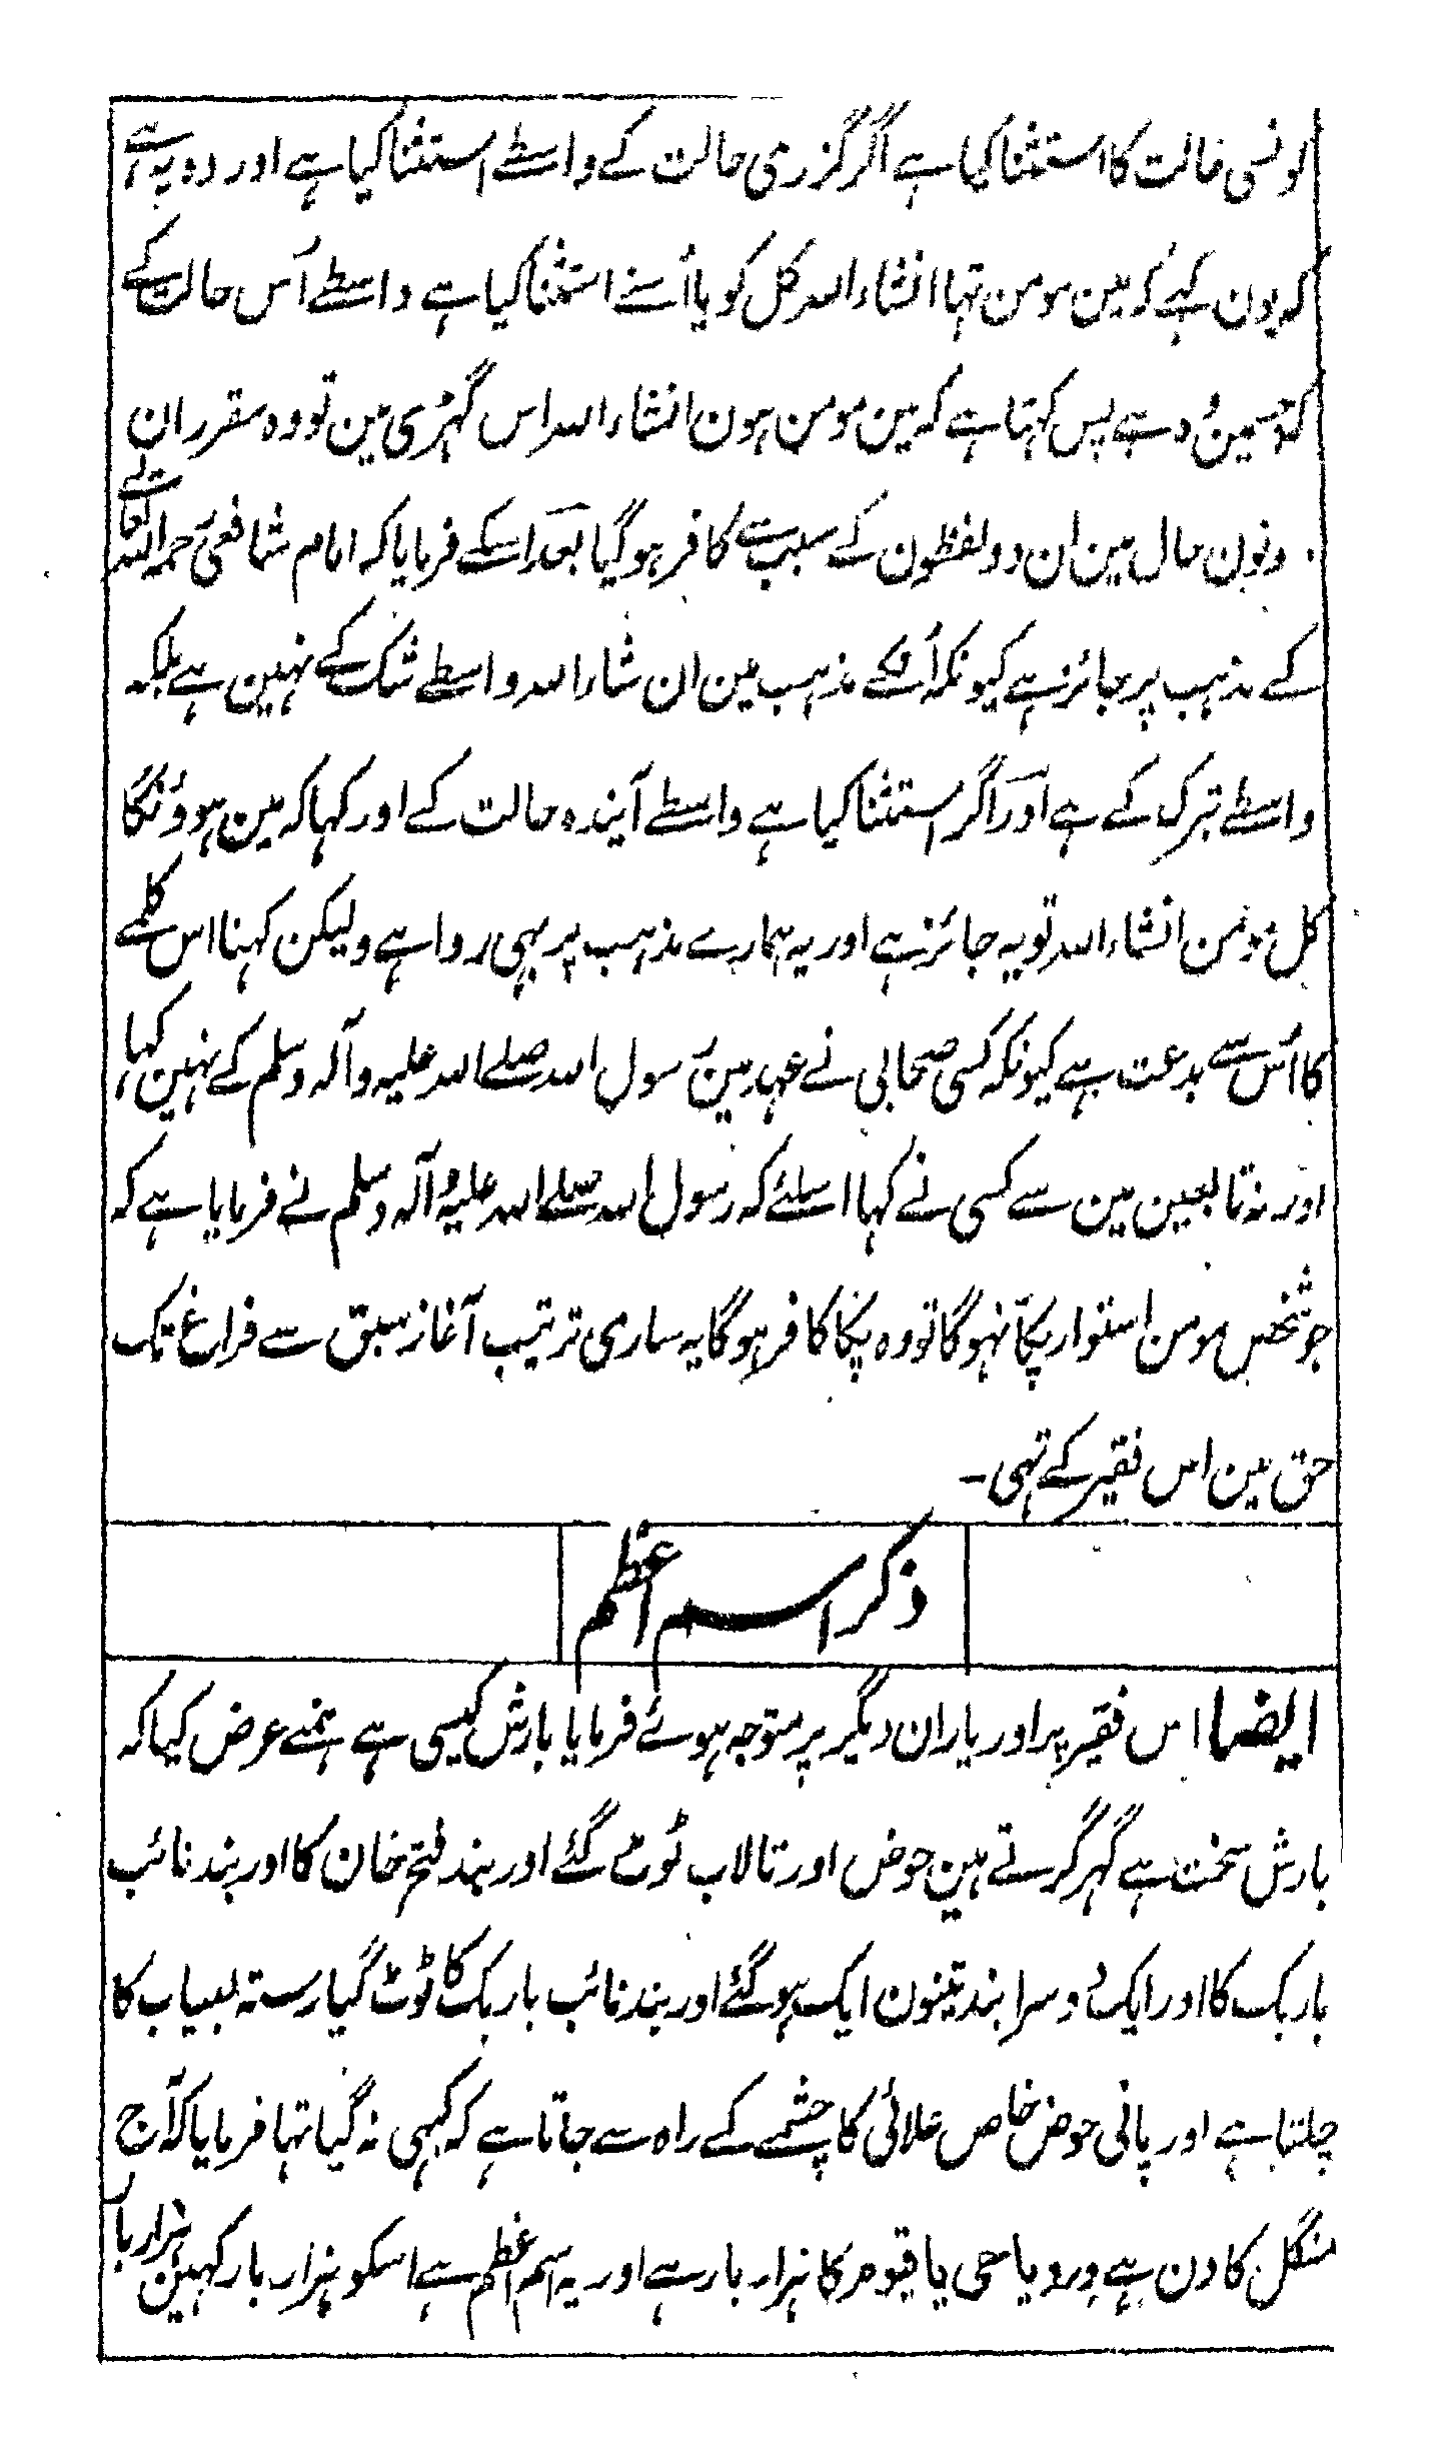 کونسی حالت کا استثنا کیا ہے اگر گزری حالت کے واسطے استثنا کیا ہے اور وہ یہ ہے
کہ یون کہے کہ مین مومن تہا انشاء اللہ کل کو یا اُسنے استثنا کیا ہے واسطے اُس حالت کے
کہ جسمین وہ ہے پس کہتا ہے کہ مین مومن ہون انشاء اللہ اس گہڑی مین تو وہ مقرر ان
دونون حال مین ان دو لفظون کے سبب سے کافر ہو گیا بعد اسکے فرمایا کہ امام شافعی رحمہ اللہ تعالے
کے مذہب پر جائز ہے کیونکہ اُنکے مذہب مین ان شاء اللہ واسطے شک کے نہین ہے بلکہ
واسطے تبرک کے ہے اور اگر استثنا کیا ہے واسطے آیندہ حالت کے اور کہا کہ مین ہوونگا
کل مومن انشاء اللہ تو یہ جائز ہے اور یہ ہمارے مذہب پر بہی روا ہے ولیکن کہنا اس کلمے
کا اُس سے بدعت ہے کیونکہ کسی صحابی نے عہد مین رسول اللہ صلے اللہ علیہ وآلہ وسلم کے نہین کہا،
اور نہ تابعین مین سے کسی نے کہا اسلئے کہ رسول اللہ صلے اللہ علیہ وآلہ وسلم نے فرمایا ہے کہ
جو شخص مومن استوار پکّا نہوگا تو وہ پکّا کافر ہوگا یہ ساری ترتیب آغاز سبق سے فراغ تک
حق مین اس فقیر کے تہی۔
ذکر اسم اعظم
ایضا اس فقیر پر اور یاران دیگر پر متوجہ ہوئے فرمایا بارش کیسی ہے ہمنے عرض کیا کہ
بارش سخت ہے گہر گرتے ہین حوض اور تالاب ٹوٹ گئے اور بند فتح خان کا اور بند نائب
باربک کا اور ایک دوسرا بند تینون ایک ہو گئے اور بند نائب باربک کا ٹوٹ گیا رستہ بسیاب کا
چلتا ہے اور پانی حوض خاص علائی کا چشمے کے راہ سے جاتا ہے کہ کبہی نہ گیا تہا فرمایا کہ آج
منگل کا دن ہے ورد یا حی یا قیوم کا ہزار بار ہے اور یہ اسم اعظم ہے اسکو ہزار بار کہین ہزار بار